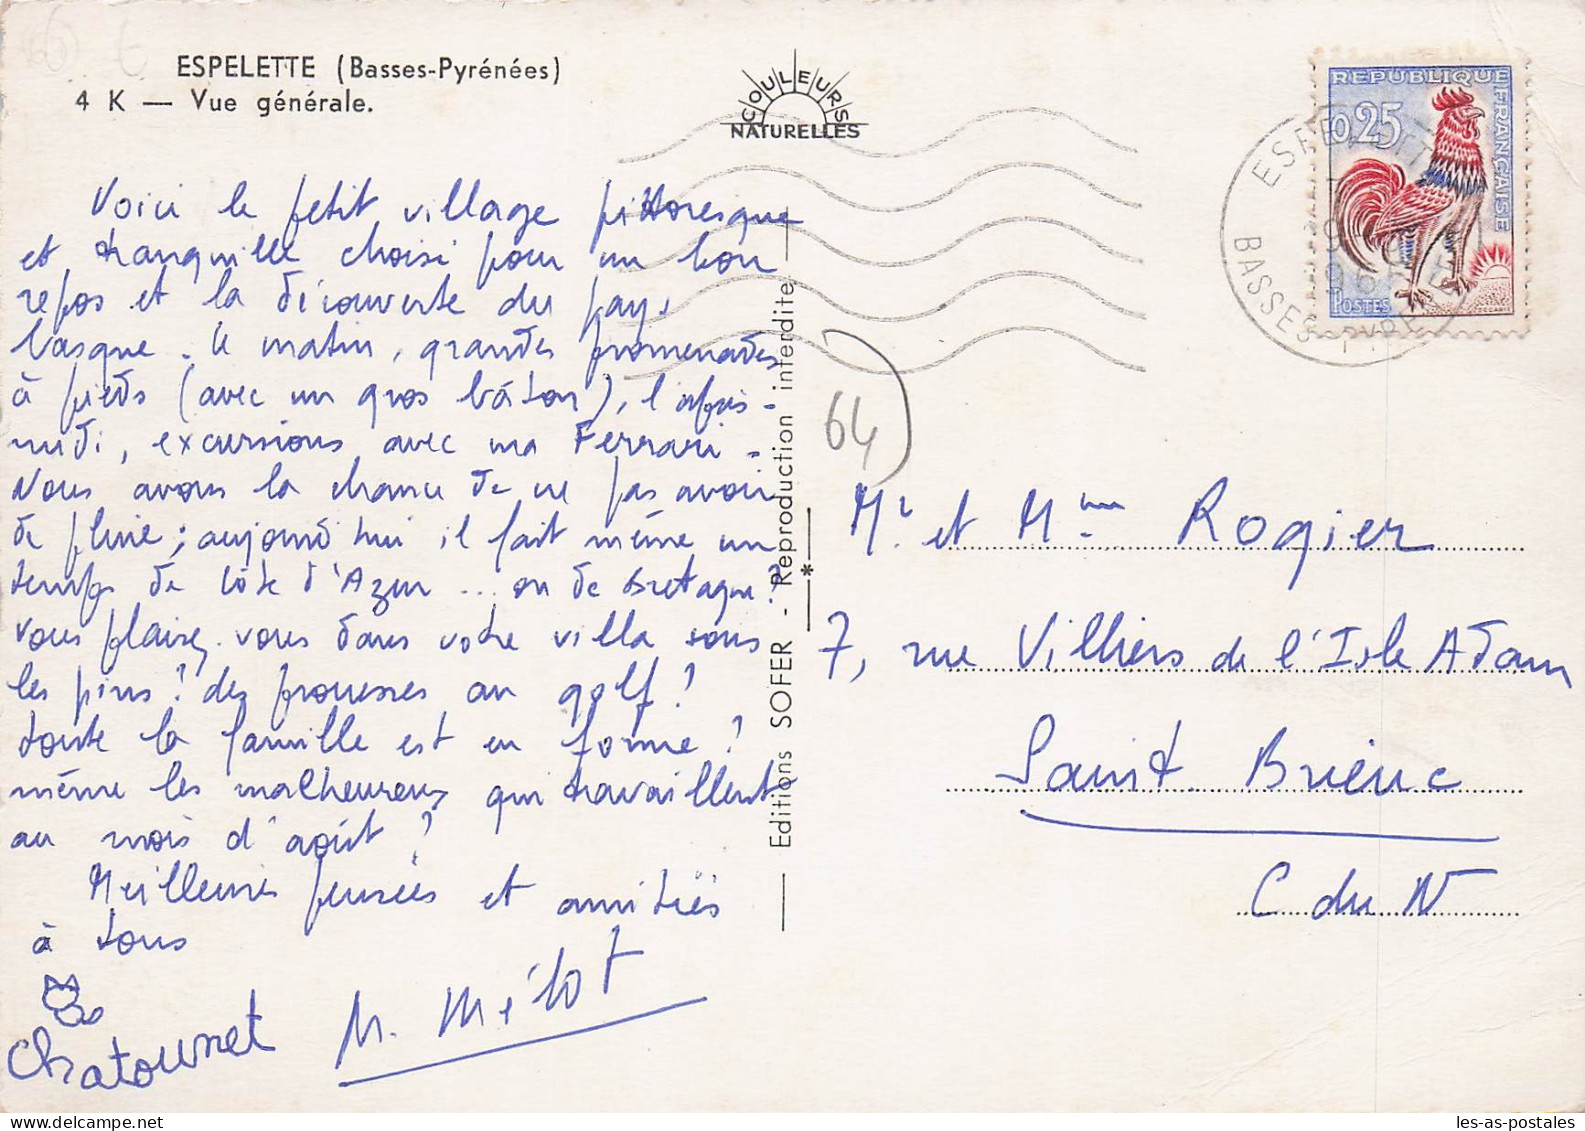 ESPELETTE (Basses-Pyrénées)
4 K — Vue générale.
COULEURS
NATURELLES
Voici le petit village pittoresque
et tranquille choisi pour un bon
repos et la découverte du pays
basque. le matin, grandes promenades
à pieds (avec un gros bâton), l'après-
midi, excursions avec ma Ferrari.
Nous avons la chance de ne pas avoir
de pluie ; aujourd'hui il fait même un
temps de côte d'Azur ... ou de Bretagne?
Vous plaisez-vous dans votre villa sous
les pins? des prouesses au golf?
toute la famille est en forme?
même les malheureux qui travaillent
au mois d'août?
Meilleures pensées et amitiés
à tous
Chatounet M. Mélot
Editions SOFER - Reproduction interdite
*
64
REPUBLIQUE FRANÇAISE
0,25
POSTES
DECARIS
ESPELETTE
BASSES-PYRENEES
Mr et Mme Rogier
7, rue Villiers de l'Isle Adam
Saint Brieuc
C du N
les-as-postales